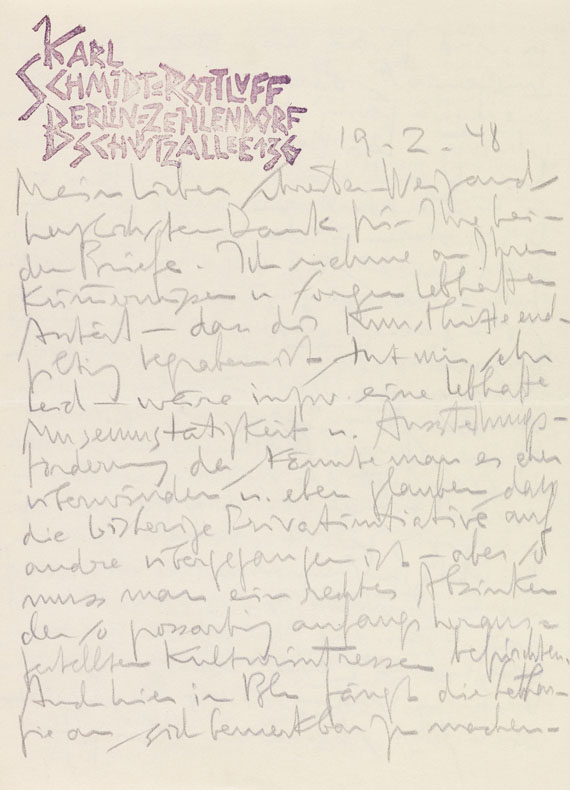 KARL
SCHMIDT=ROTTLUFF
BERLIN=ZEHLENDORF
SCHÜTZALLEE 136
19. 2. 48
Mein lieber Weigand
herzlichsten Dank für Ihre bei-
den Briefe. Ich nehme an Ihren
Kümmernissen u Sorgen lebhaften
Anteil – dass die Kunsthütte end-
gültig begraben ist – tut mir sehr
leid – wäre eine lebhafte
Museumstätigkeit u. Ausstellungs-
förderung da, könnte man es eher
überwinden u. eben glauben dass
die bisherige Privatinitiative auf
andre übergegangen ist – aber so
muss man ein rechtes Absinken
der so grossartig anfangs heraus=
gestellten Kulturintressen befürchten.
Auch hier in Bln fängt die Lethar-
gie an – sich bemerkbar zu machen –